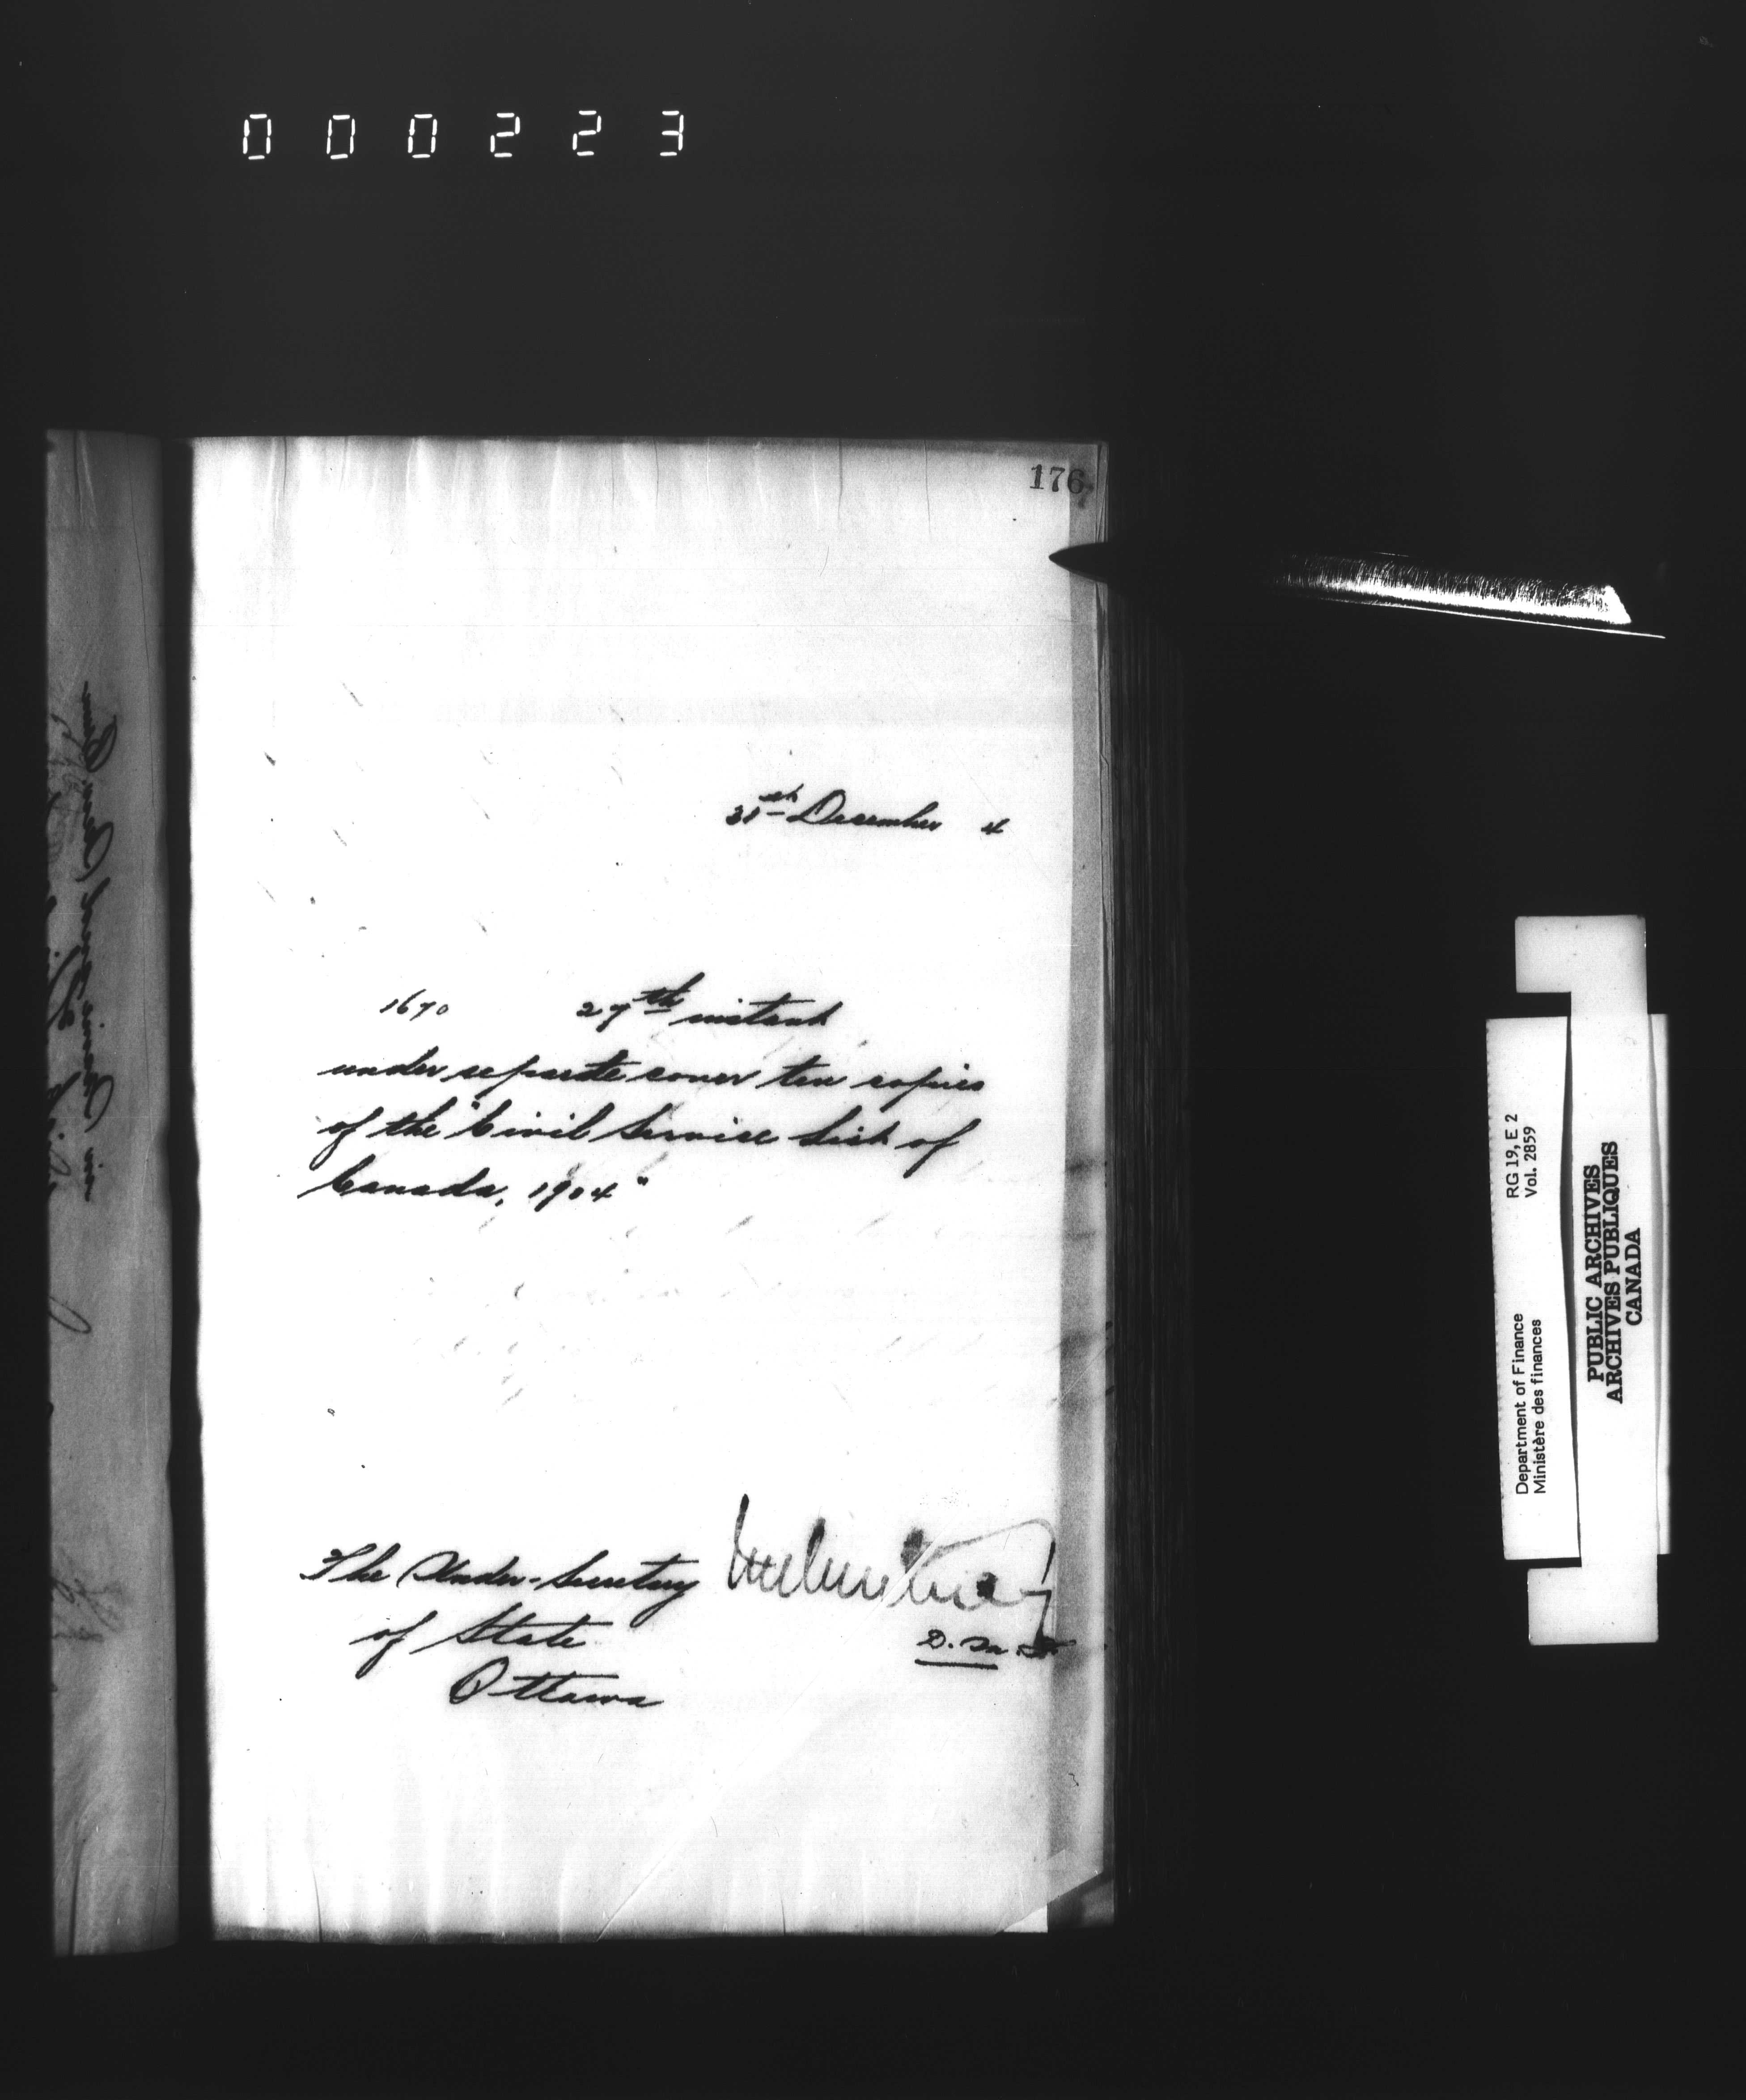 000223
176
31st December 4
1670 27th instant
under separate cover ten copies
of the "Civil Service List of
Canada, 1904"
The Under-Secretary
of State
Ottawa
D. M. F.
RG 19, E 2
Vol. 2859
Department of Finance
Ministère des finances
PUBLIC ARCHIVES
ARCHIVES PUBLIQUES
CANADA